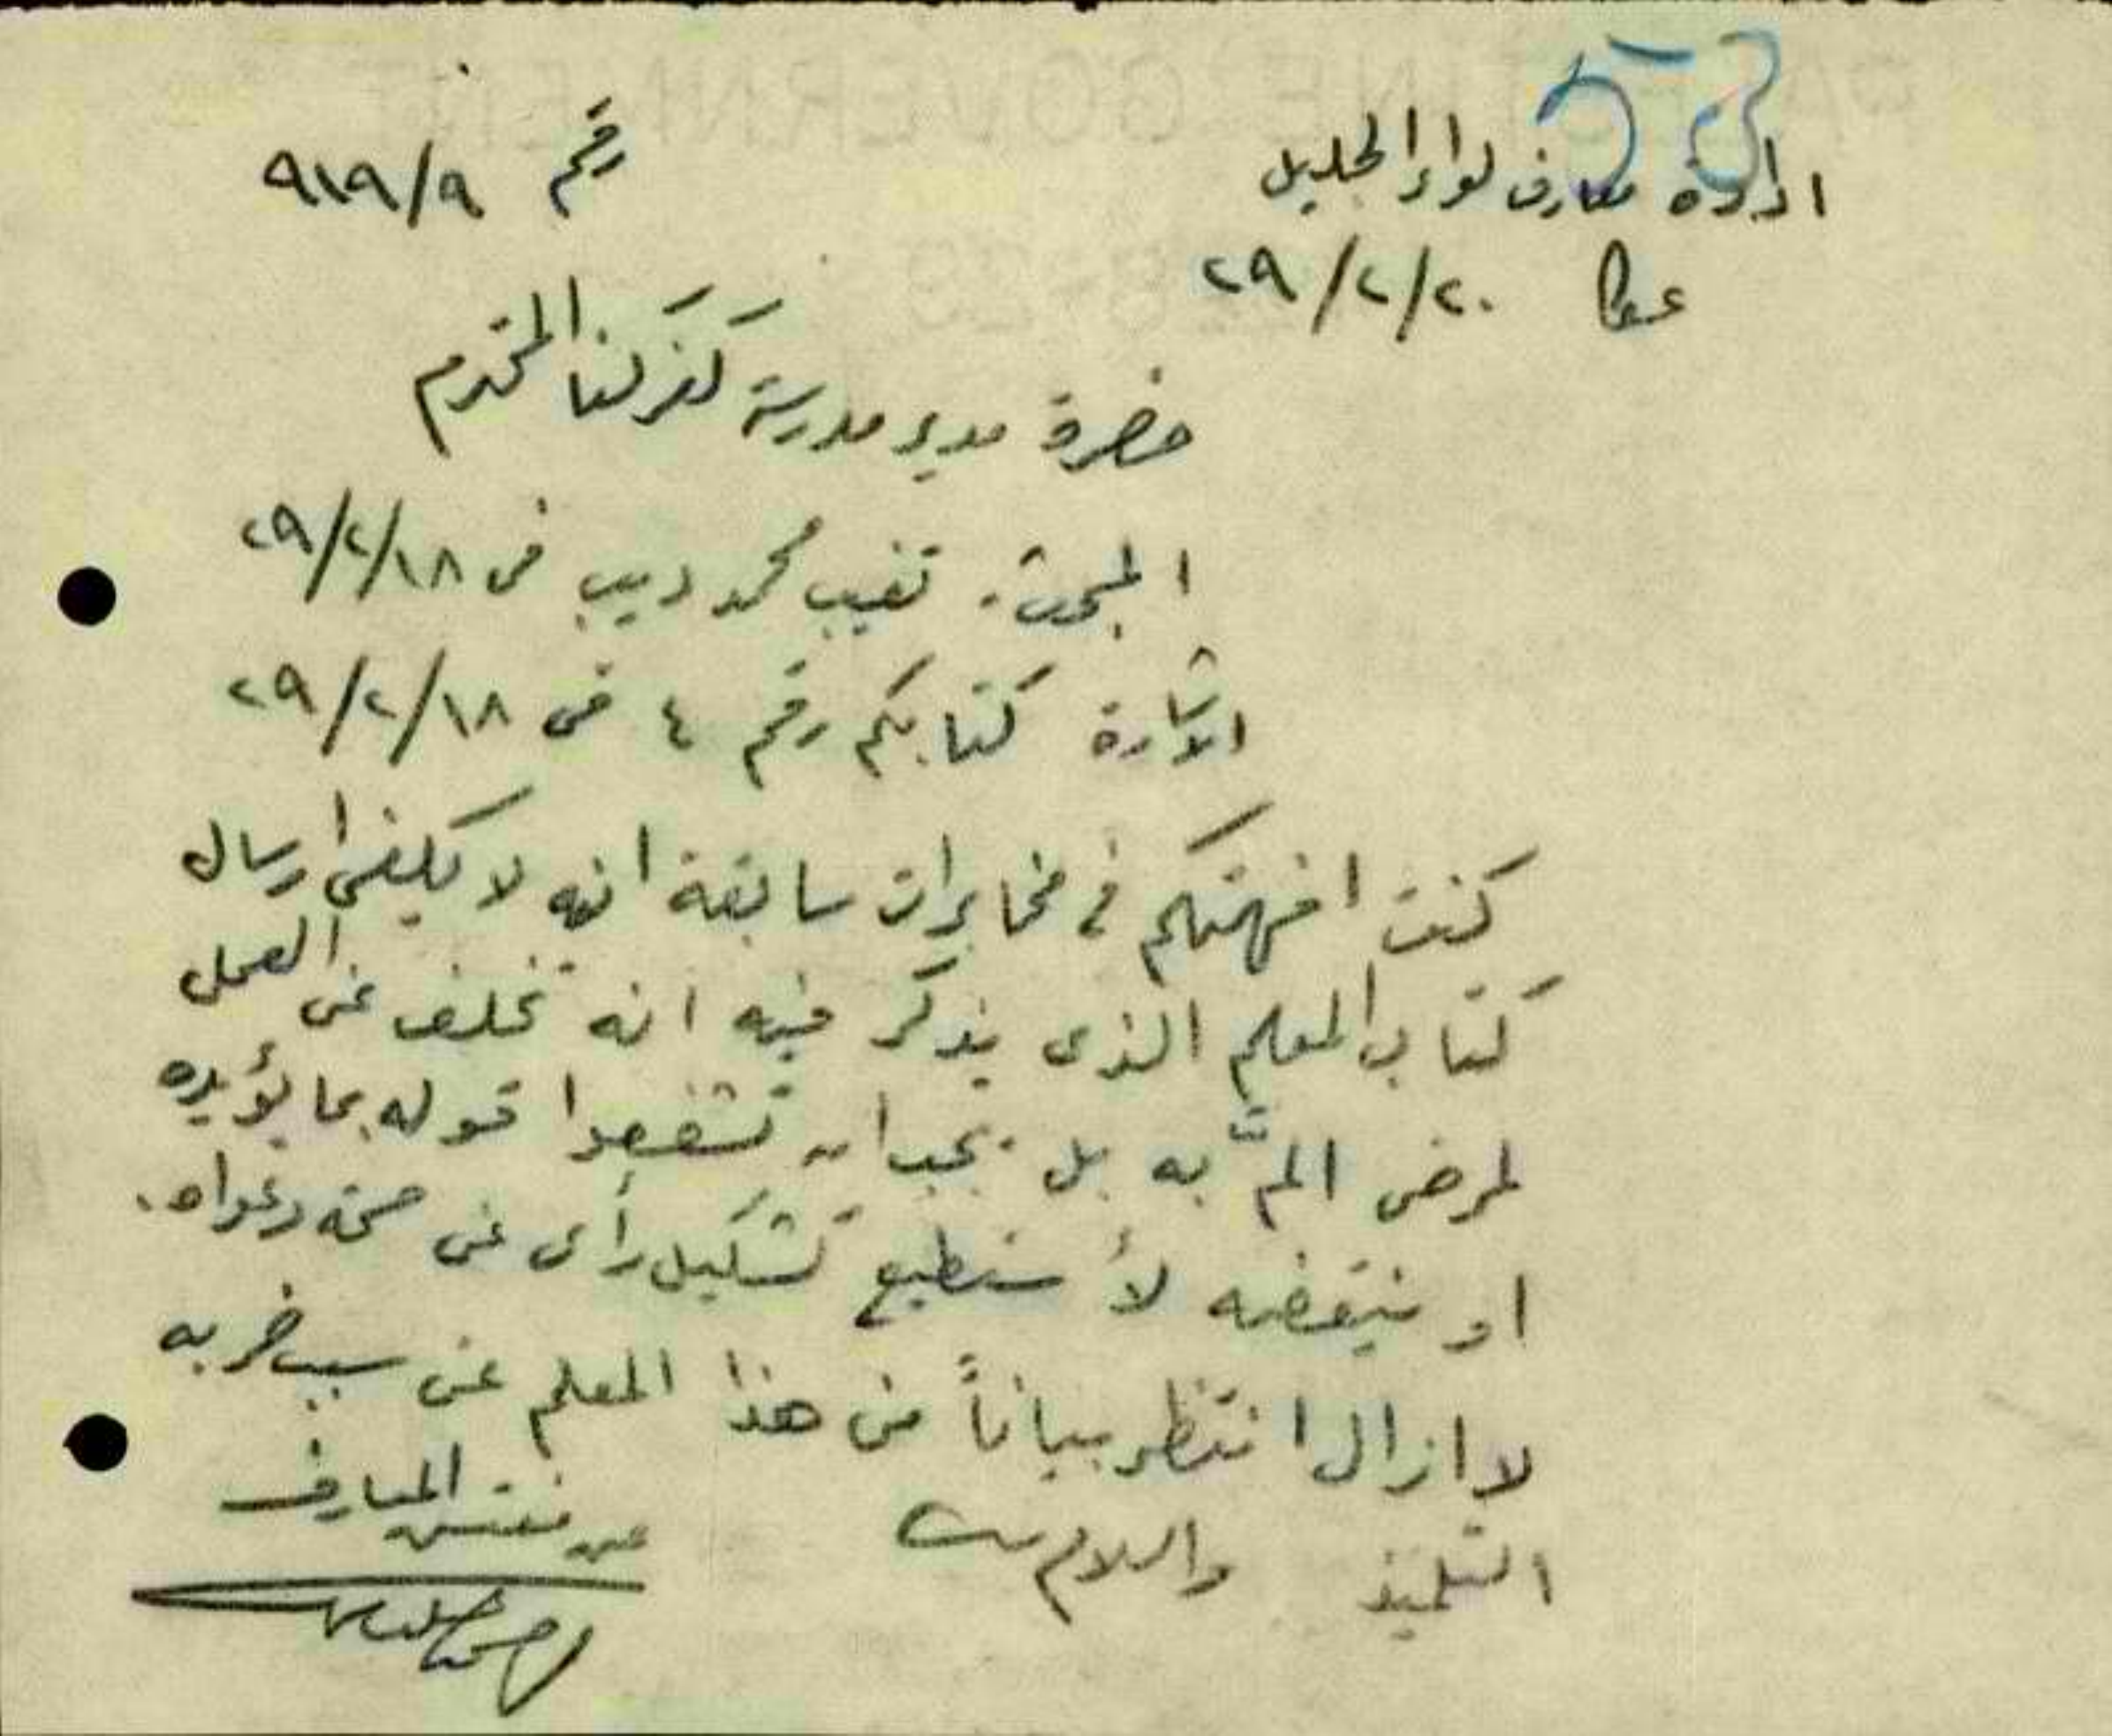 53
ادارة معارف لواء الجليل
رقم ٩١٩/٩
عكا ٢٩/٢/٢٠
حضرة مدير مدرسة كفركنا المحترم
المبحث: تغيب محمد ديب في ٢٩/٢/١٨
الاشارة كتابكم رقم ٤ في ٢٩/٢/١٨
كنت افهمتكم في مخابرات سابقة انه لا يكفي ارسال
كتاب المعلم الذي يذكر فيه انه تخلف عن العمل
لمرض المّ به بل يجب ان تشفعوا قوله بما يؤيده
او ينقضه لأستطيع تشكيل رأي عن صحة دعواه.
لا ازال انتظر بياناً من هذا المعلم عن سبب ضربه
التلميذ والسلام
عن مفتش المعارف